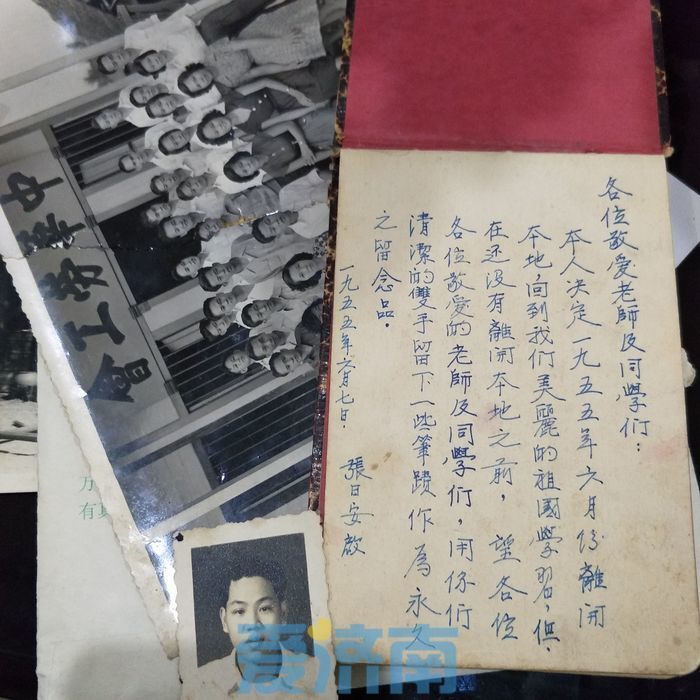 各位敬爱老師及同學们：
本人决定一九五五年六月份離開
本地回到我们美麗的祖國學習，但.
在还没有離開本地之前，望各位
各位敬爱的老師及同學们，用你们
清潔的雙手留下一些筆蹟作為永久
之留念品.
一九五五年六月七日.
張日安啟
中華勞工會
万
有
爱济南